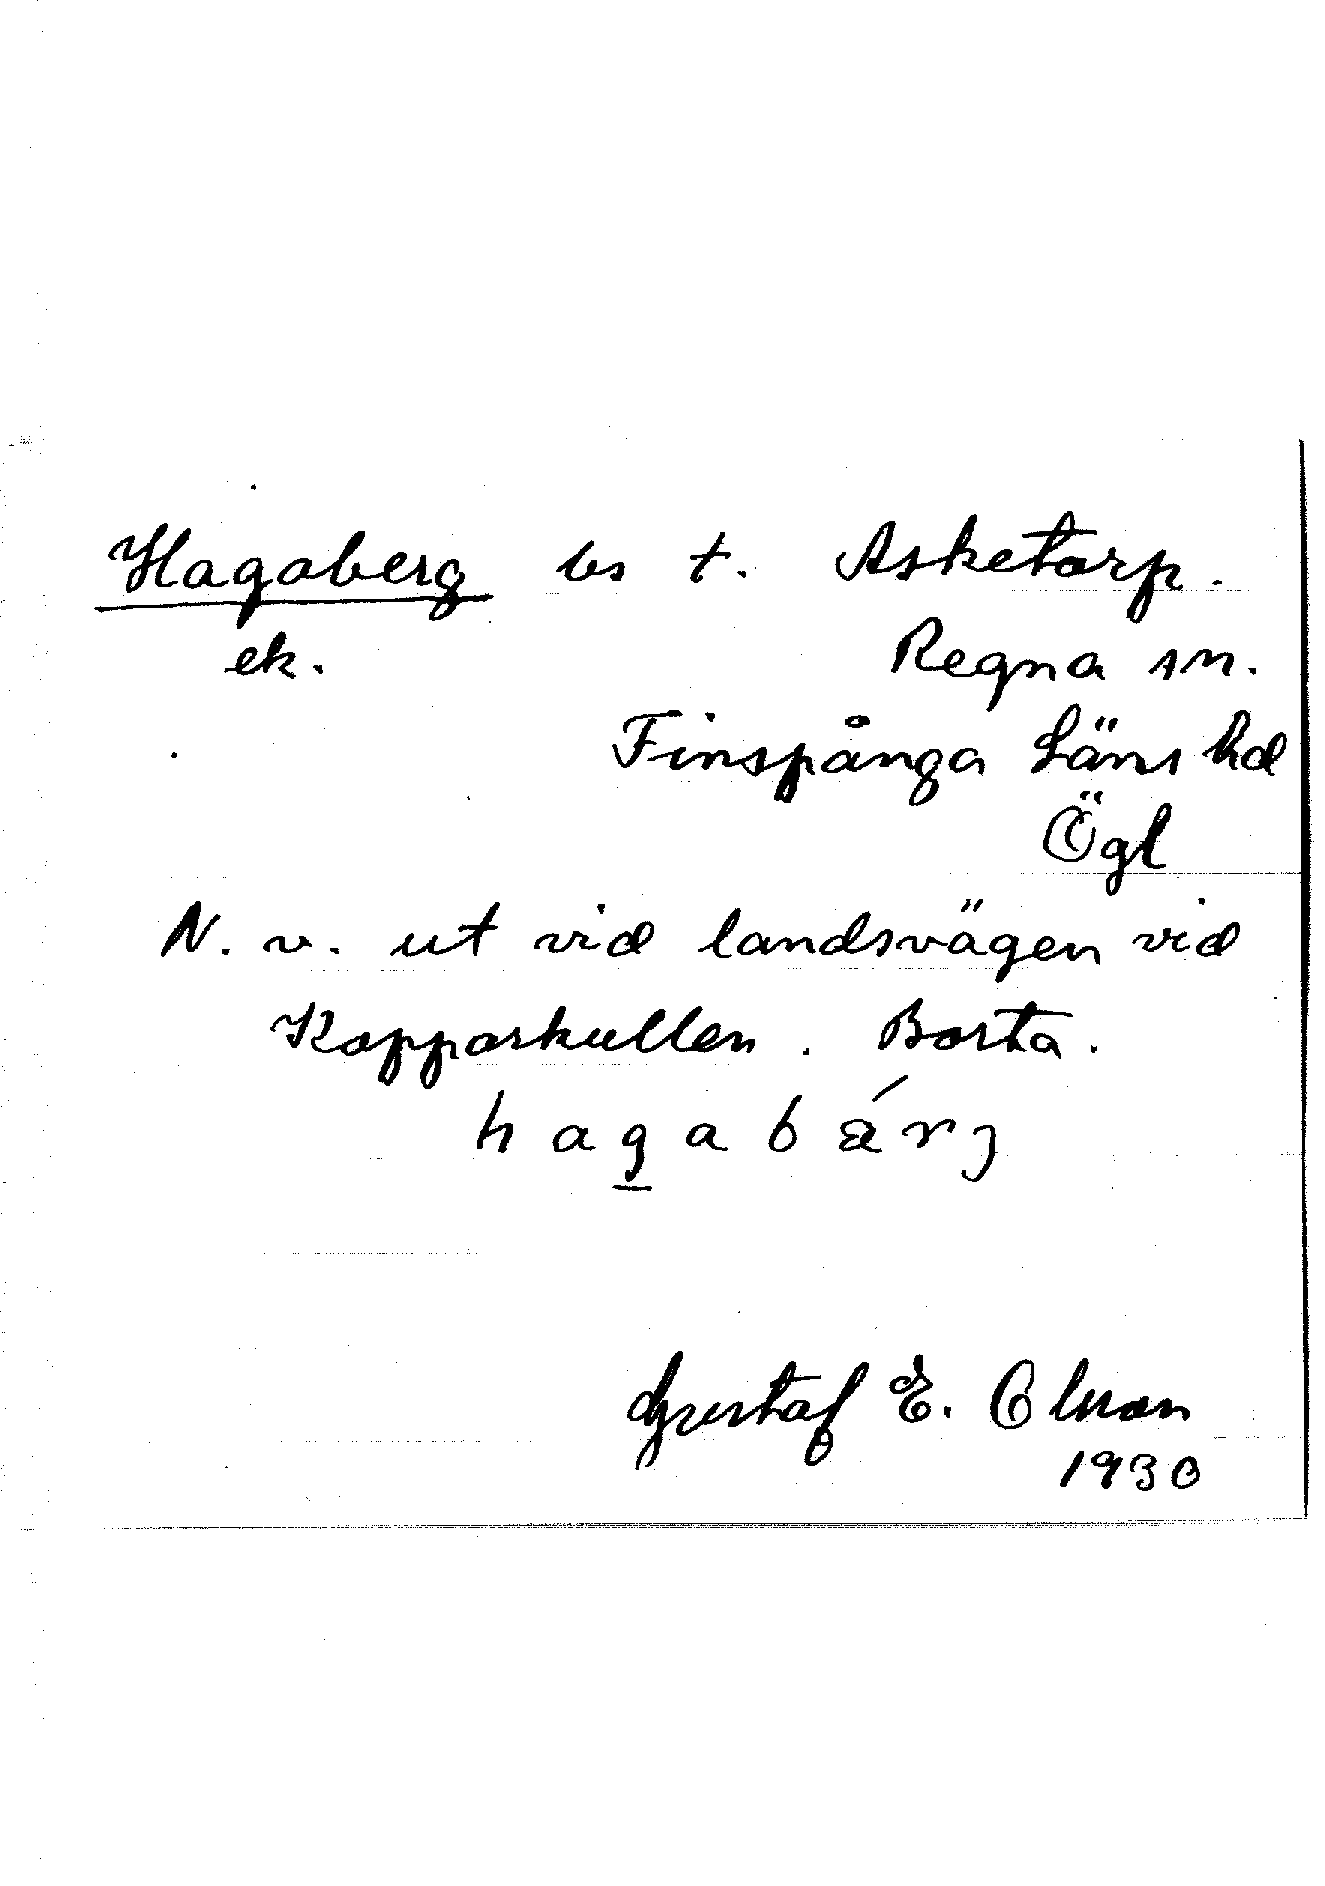 Hagaberg bs t. Asketorp.
ek. Regna sn.
Finspånga Läns hd
Ögl
N. v. ut vid landsvägen vid
Kopparkullen. Borta.
hagabǽrj
Gustaf E. Olsson
1930